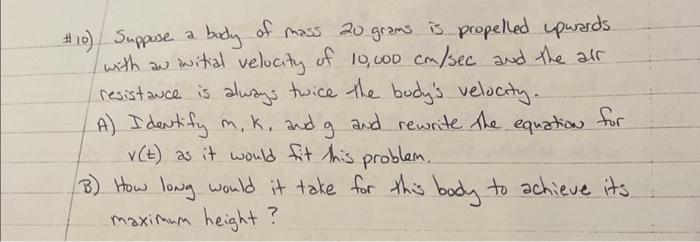 #10) Suppose a body of mass 20 grams is propelled upwards
with an initial velocity of 10,000 cm/sec and the air
resistance is always twice the body's velocity.
A) Identify m, k, and g and rewrite the equation for
v(t) as it would fit this problem.
B) How long would it take for this body to achieve its
maximum height?